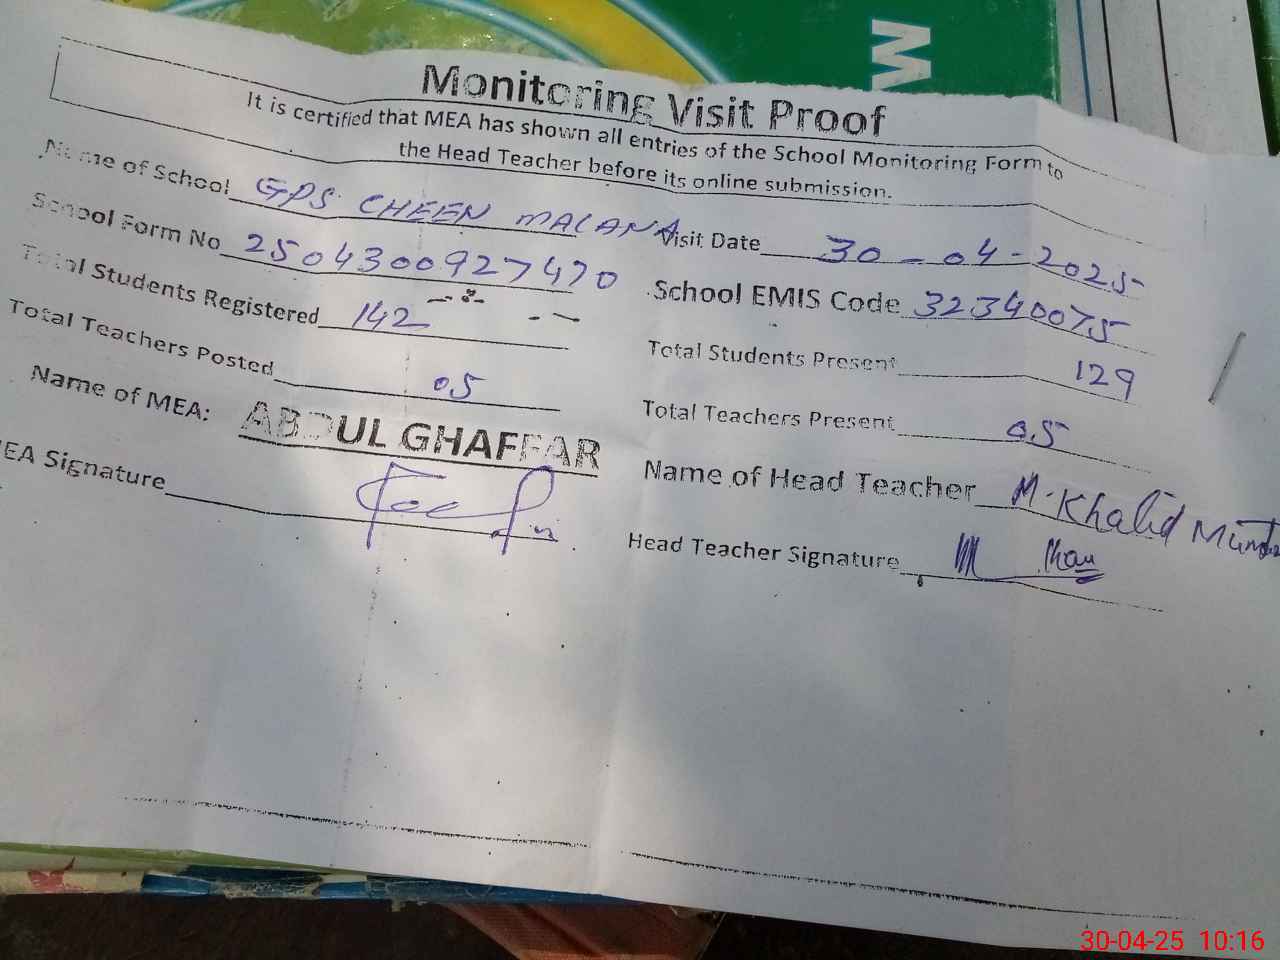 W
Monitoring Visit Proof
It is certified that MEA has shown all entries of the School Monitoring Form to
the Head Teacher before its online submission.
Name of School GPS CHEEN MALANA Visit Date 30-04-2025
School Form No 2504300927470 School EMIS Code 32340075
Total Students Registered 142 Total Students Present 129
Total Teachers Posted 05 Total Teachers Present 05
Name of MEA: ABDUL GHAFFAR Name of Head Teacher M. Khalid
MEA Signature Head Teacher Signature
30-04-25 10:16